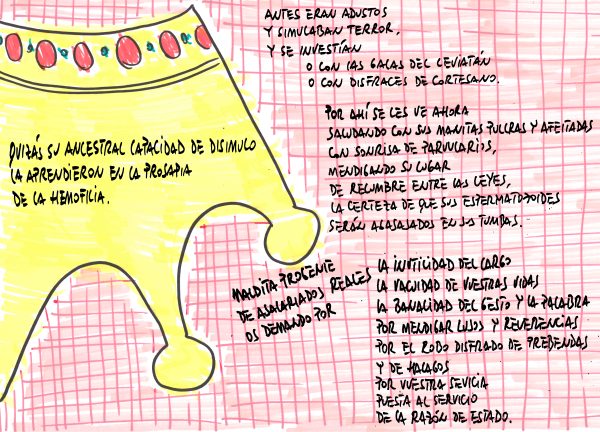 ANTES ERAN ADUSTOS
Y SIMULABAN TERROR,
Y SE INVESTÍAN
O CON LAS GALAS DEL LEVIATÁN
O CON DISFRACES DE CORTESANO.
QUIZÁS SU ANCESTRAL CAPACIDAD DE DISIMULO
LA APRENDIERON EN LA PROSAPIA
DE LA HEMOFILIA.
POR AHÍ SE LES VE AHORA
SALUDANDO CON SUS MANITAS PULCRAS Y AFEITADAS
CON SONRISA DE PARVULARIOS,
MENDIGANDO SU LUGAR
DE RELUMBRE ENTRE LAS LEYES,
LA CERTEZA DE QUE SUS ESPERMATOZOIDES
SERÁN AGASAJADOS EN SUS TUMBAS.
MALDITA PROGENIE
DE ASALARIADOS REALES
OS DEMANDO POR
LA INUTILIDAD DEL CARGO
LA VACUIDAD DE VUESTRAS VIDAS
LA BANALIDAD DEL GESTO Y LA PALABRA
POR MENDIGAR LUJOS Y REVERENCIAS
POR EL ROBO DISFRADO DE PREBENDAS
Y DE HALAGOS
POR VUESTRA SEVICIA
PUESTA AL SERVICIO
DE LA RAZÓN DE ESTADO.